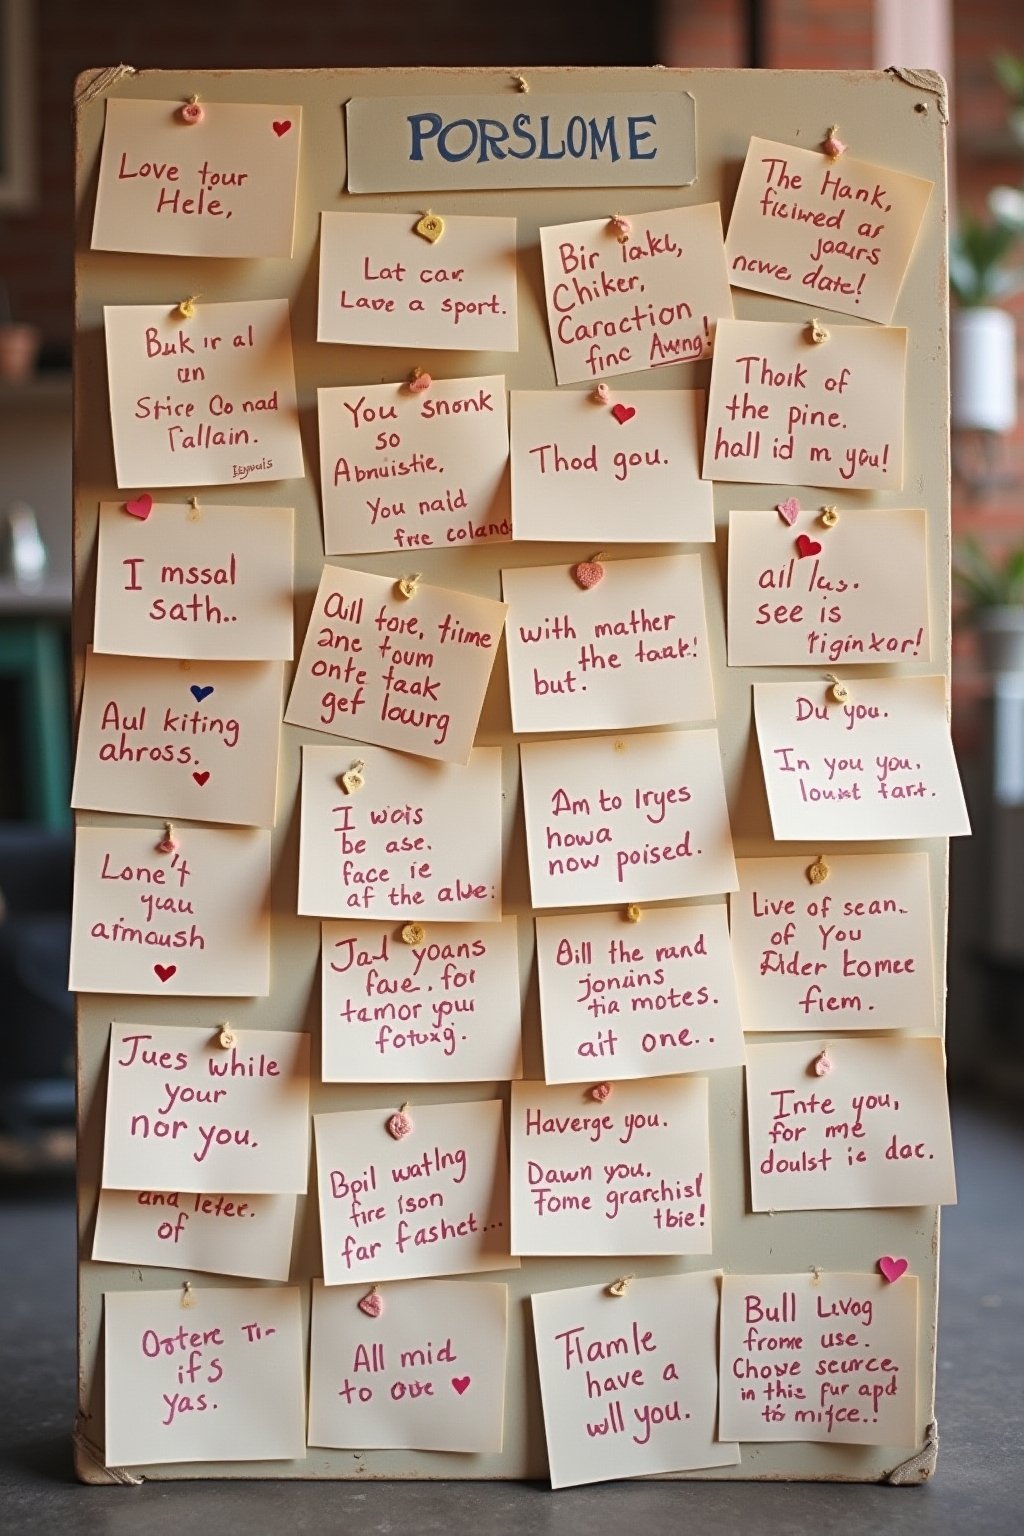 PORSLOME
Love tour
Hele,
Lat car.
Lave a sport.
Bir takl,
Chiker,
Caraction
finc Awng!
The Hank,
ficiwed as
joaurs
nowe date!
Buk ir al
an
Strice Co nad
Tallain.
You snonk
so
Abnuistie.
You naid
frre coland
Thod gou.
Thoik of
the pine.
hall id m you!
I mssal
sath..
All fore, time
ane toum
onte taak
get lowrg
with mather
the taak!
but.
ail las.
see is
riginxor!
Aul kiting
ahross.
I wois
be ase.
face ie
af the alve:
Am to Iryes
howa
now poised.
Du you.
In you you.
loust fart.
Lone't
yuau
aimoush
Jad yoans
faue. for
tamor your
fotuxg.
Bill the rand
jonains
tia motes.
ait one..
Live of sean.
of You
Rider tomee
fiem.
Jues while
your
nor you.
and leter.
of
Bpil watlng
fire ison
far fashet...
Haverge you.
Dawn you.
Tome grarchist
tbie!
Inte you,
for me
doulst ie dac.
Ostere Ti-
ifS
yas.
All mid
to ove
Tlamle
have a
wll you.
Bull Livog
frome use.
Chowe seurce.
in this fur apd
tis mifce.!